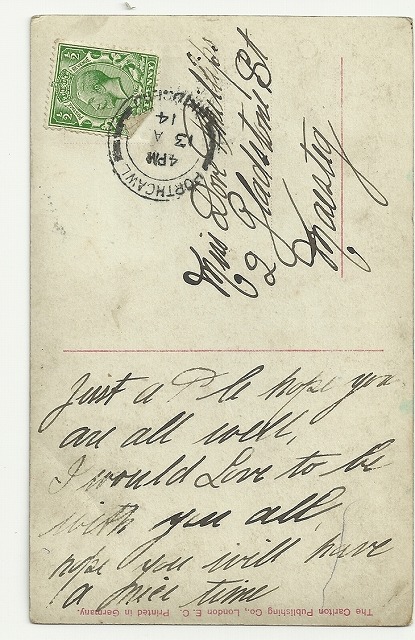 PORTHCAWL
4 PM
13 A
14
Miss Phillips
62 Gladstone St
Maesteg
Just a P C hope you
are all well,
I would Love to be
with you all
hope you will have
a nice time
The Carlton Publishing Co., London E. C. Printed in Germany.